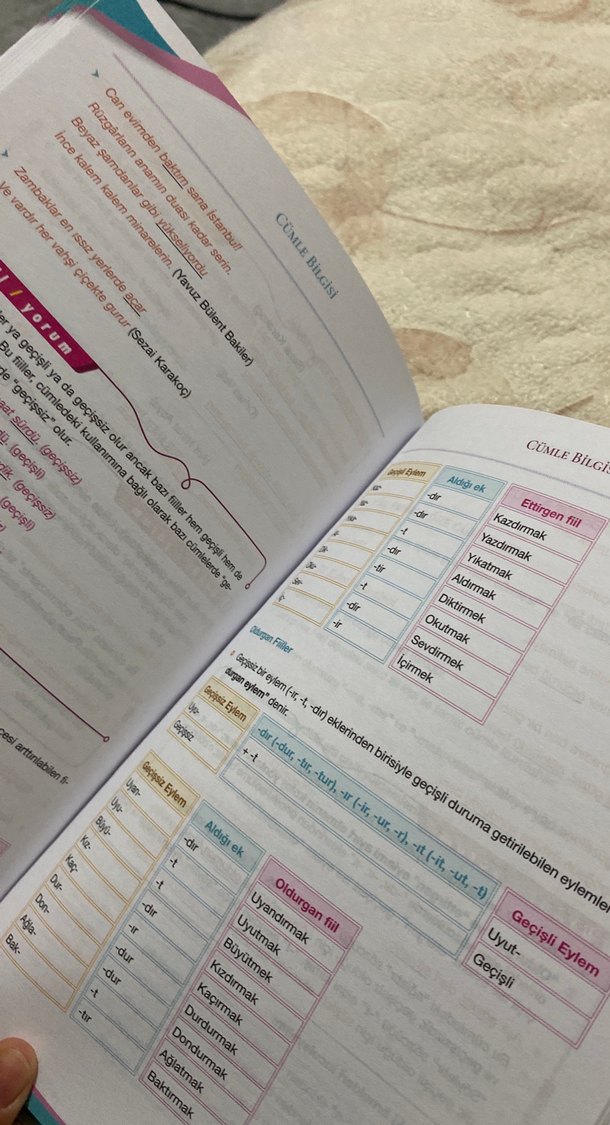 CÜMLE BİLGİSİ
Can evimden baktım sana İstanbul!
Rüzgârların anamın duası kadar serin.
Beyaz şamdanlar gibi yükseliyordu
İnce kalem kalem minarelerin. (Yavuz Bülent Bakiler)
Zambaklar en ıssız yerlerde açar
Ve vardır her vahşi çiçekte gurur (Sezai Karakoç)
yorum
ya geçişli ya da geçişsiz olur ancak bazı fiiller hem geçişli hem de
Bu fiiller, cümledeki kullanımına bağlı olarak bazı cümlelerde "ge-
"geçissiz" olur.
sürdü. (geçişsiz)
(geçişli)
(geçişsiz)
(geçişli)
arttırılabilen fi-
CÜMLE BİLGİS
Geçişli Eylem Aldığı ek Ettirgen fiil
-dır Kazdırmak
-dır Yazdırmak
-t Yıkatmak
-dır Aldırmak
-tir Diktirmek
-t Okutmak
-dir Sevdirmek
-ir İçirmek
Oldurgan Fiiller
Geçişsiz bir eylem (-ır, -t, -dır) eklerinden birisiyle geçişli duruma getirilebilen eylemler
durgan eylem" denir.
Geçişsiz Eylem -dır (-dur, -tır, -tur), -ır (-ir, -ur, -r), -ıt (-it, -ut, -t) Geçişli Eylem
Uyu- + -t Uyut-
Geçişsiz Geçişli
Geçişsiz Eylem Aldığı ek Oldurgan fiil
Uyan- -dır Uyandırmak
Uyu- -t Uyutmak
Büyü- -t Büyütmek
Kız- -dır Kızdırmak
Kaç- -ır Kaçırmak
Dur- -dur Durdurmak
Don- -dur Dondurmak
Ağla- -t Ağlatmak
Bak- -tır Baktırmak